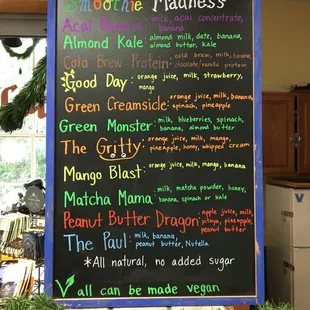 Smoothie Madness
Acai Berry: milk, acai concentrate,
banana
Almond Kale: almond milk, date, banana,
almond butter, kale
Cold Brew Protein: cold brew, milk, banana,
chocolate/vanilla protein
Good Day: orange juice, milk, strawberry,
mango
Green Creamsicle: orange juice, milk, banana,
spinach, pineapple
Green Monster: milk, blueberries, spinach,
banana, almond butter
The Gritty: orange juice, milk, mango,
pineapple, honey, whipped cream
Mango Blast: orange juice, milk, mango, banana
Matcha Mama: milk, matcha powder, honey,
banana, spinach or kale
Peanut Butter Dragon: apple juice, milk,
pitaya, pineapple,
peanut butter
The Paul: milk, banana,
peanut butter, Nutella
*All natural, no added sugar
V all can be made vegan